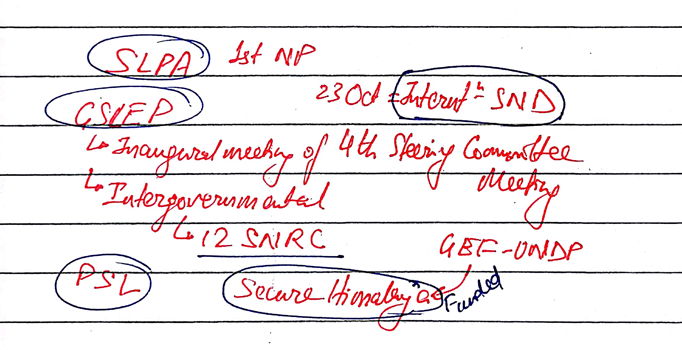 SLPA 1st NP
23 Oct = Internatⁿ SND
GSLEP
↳ Inaugural meeting of 4th Steering Committee Meeting
↳ Intergovernmental
↳ 12 SNRC
GEF-UNDP
PSL Secure Himalayas Funded